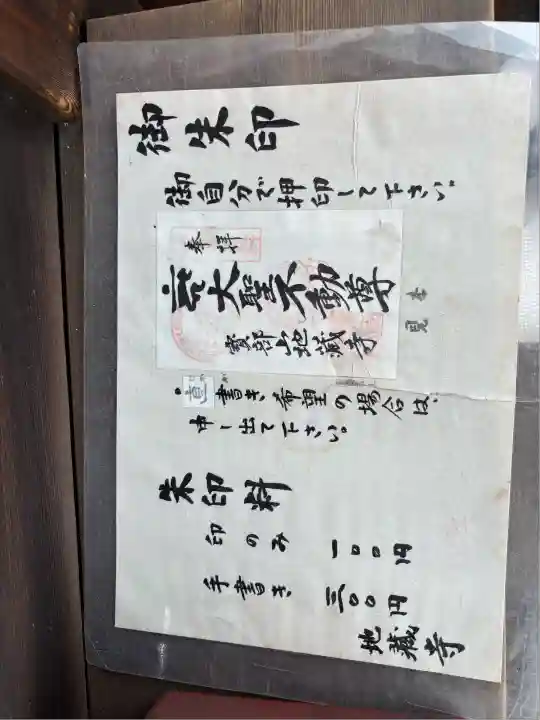 御朱印
御自分で押印して下さい。
奉拝
大聖不動尊
宝部山地蔵寺
見本
直書き希望の場合は、
申し出て下さい。
朱印料
印のみ 一〇〇円
手書き 三〇〇円
地蔵寺